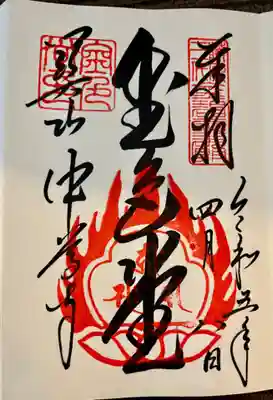 奉拝
令和五年
四月八日
金色堂
関山 中尊寺